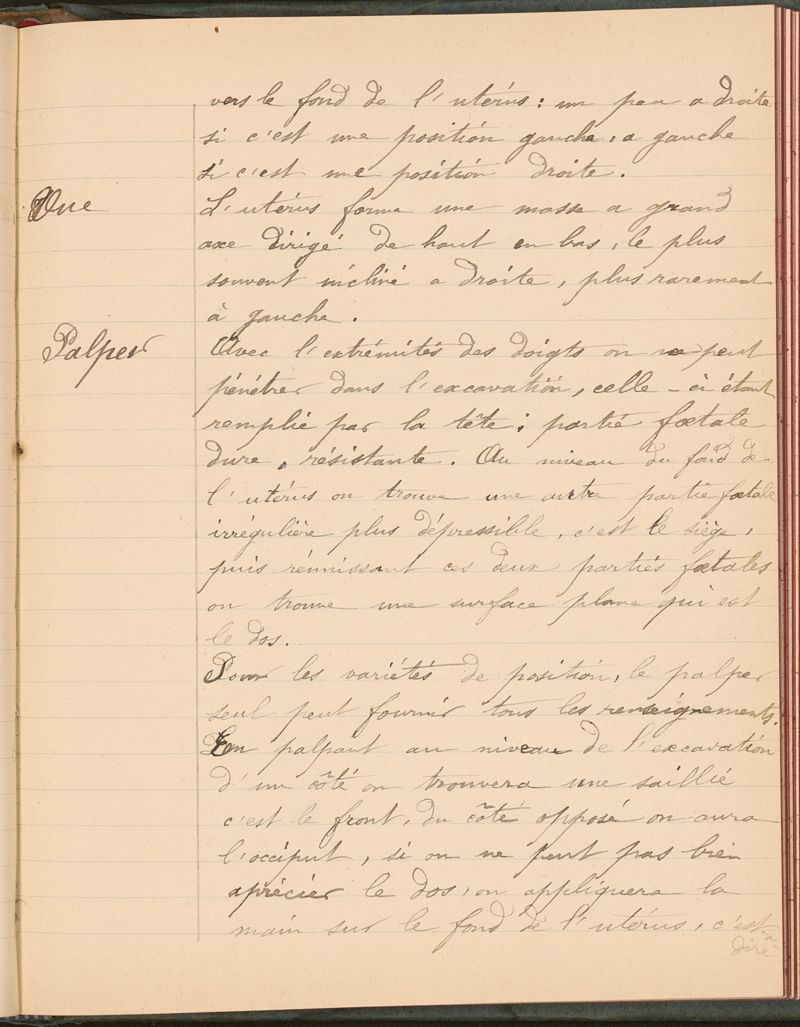 vers le fond de l'utérus : un peu a droite
si c'est une position gauche, a gauche
si c'est une position droite.
Vue
L'utérus forme une masse a grand
axe dirigé de haut en bas, le plus
souvent incliné a droite, plus rarement
à gauche.
Palper
Avec l'extrémités des doigts on ne peut
pénétrer dans l'excavation, celle-ci étant
remplie par la tête; partie fœtale
dure, résistante. Au niveau du fond de
l'utérus on trouve une autre partie fœtale
irrégulière plus dépressible, c'est le siège,
puis réunissant ces deux parties fœtales
on trouve une surface plane qui est
le dos.
Pour les variétés de position, le palper
seul peut fournir tous les renseignements.
En palpant au niveau de l'excavation
d'un côté on trouvera une saillie
c'est le front, du côté opposé on aura
l'occiput, si on ne peut pas bien
aprécier le dos, on appliquera la
main sur le fond de l'utérus, c'est-à-
dire